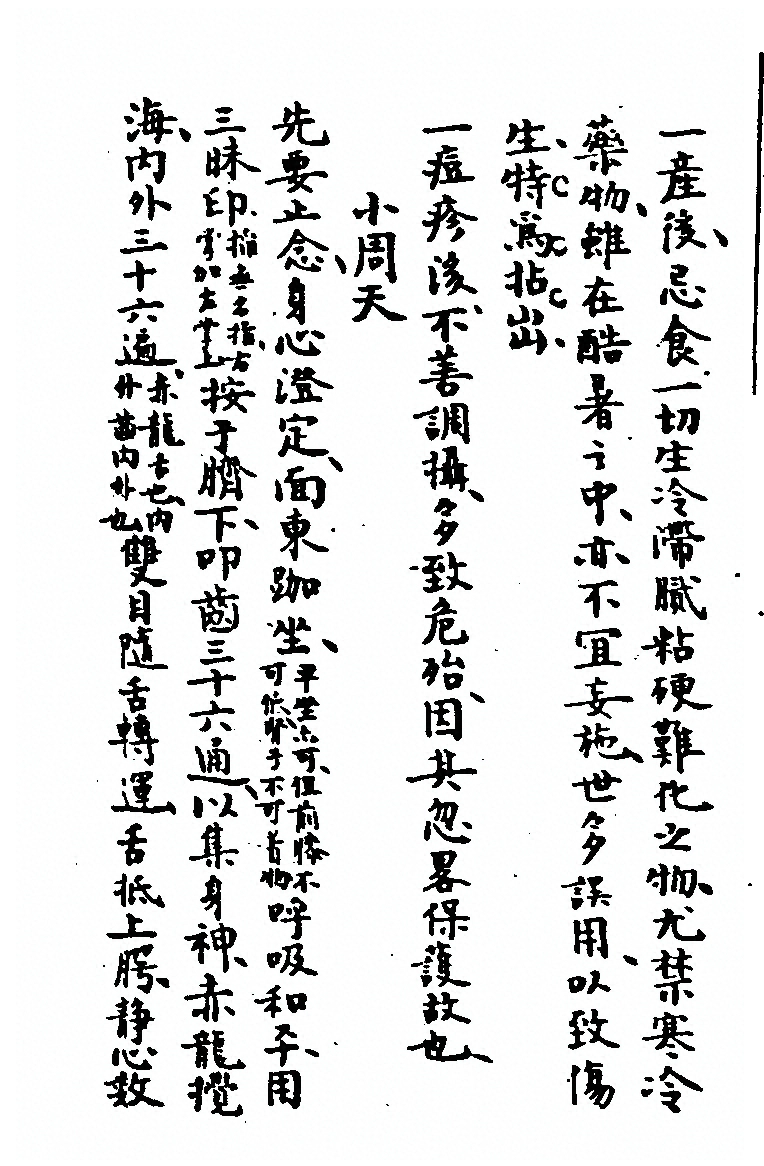 一產後、忌食一切生冷滯膩粘硬難化之物、尤禁寒冷
藥物、雖在酷暑之中、亦不宜妄施、世多誤用、以致傷
生、特爲拈出、
一痘疹後、不善調攝、多致危殆、因其忽畧保護故也、
小周天
先要止念、身心澄定、面東跏坐、平坐亦可、但前膝不可低、腎子不可着物呼吸和平、用
三昧印、掐無名指、右掌加左掌上按于臍下、叩齒三十六通、以集身神、赤龍攪
海、内外三十六遍、赤龍舌也、内外齒内外也、雙目隨舌轉運、舌抵上腭、靜心数